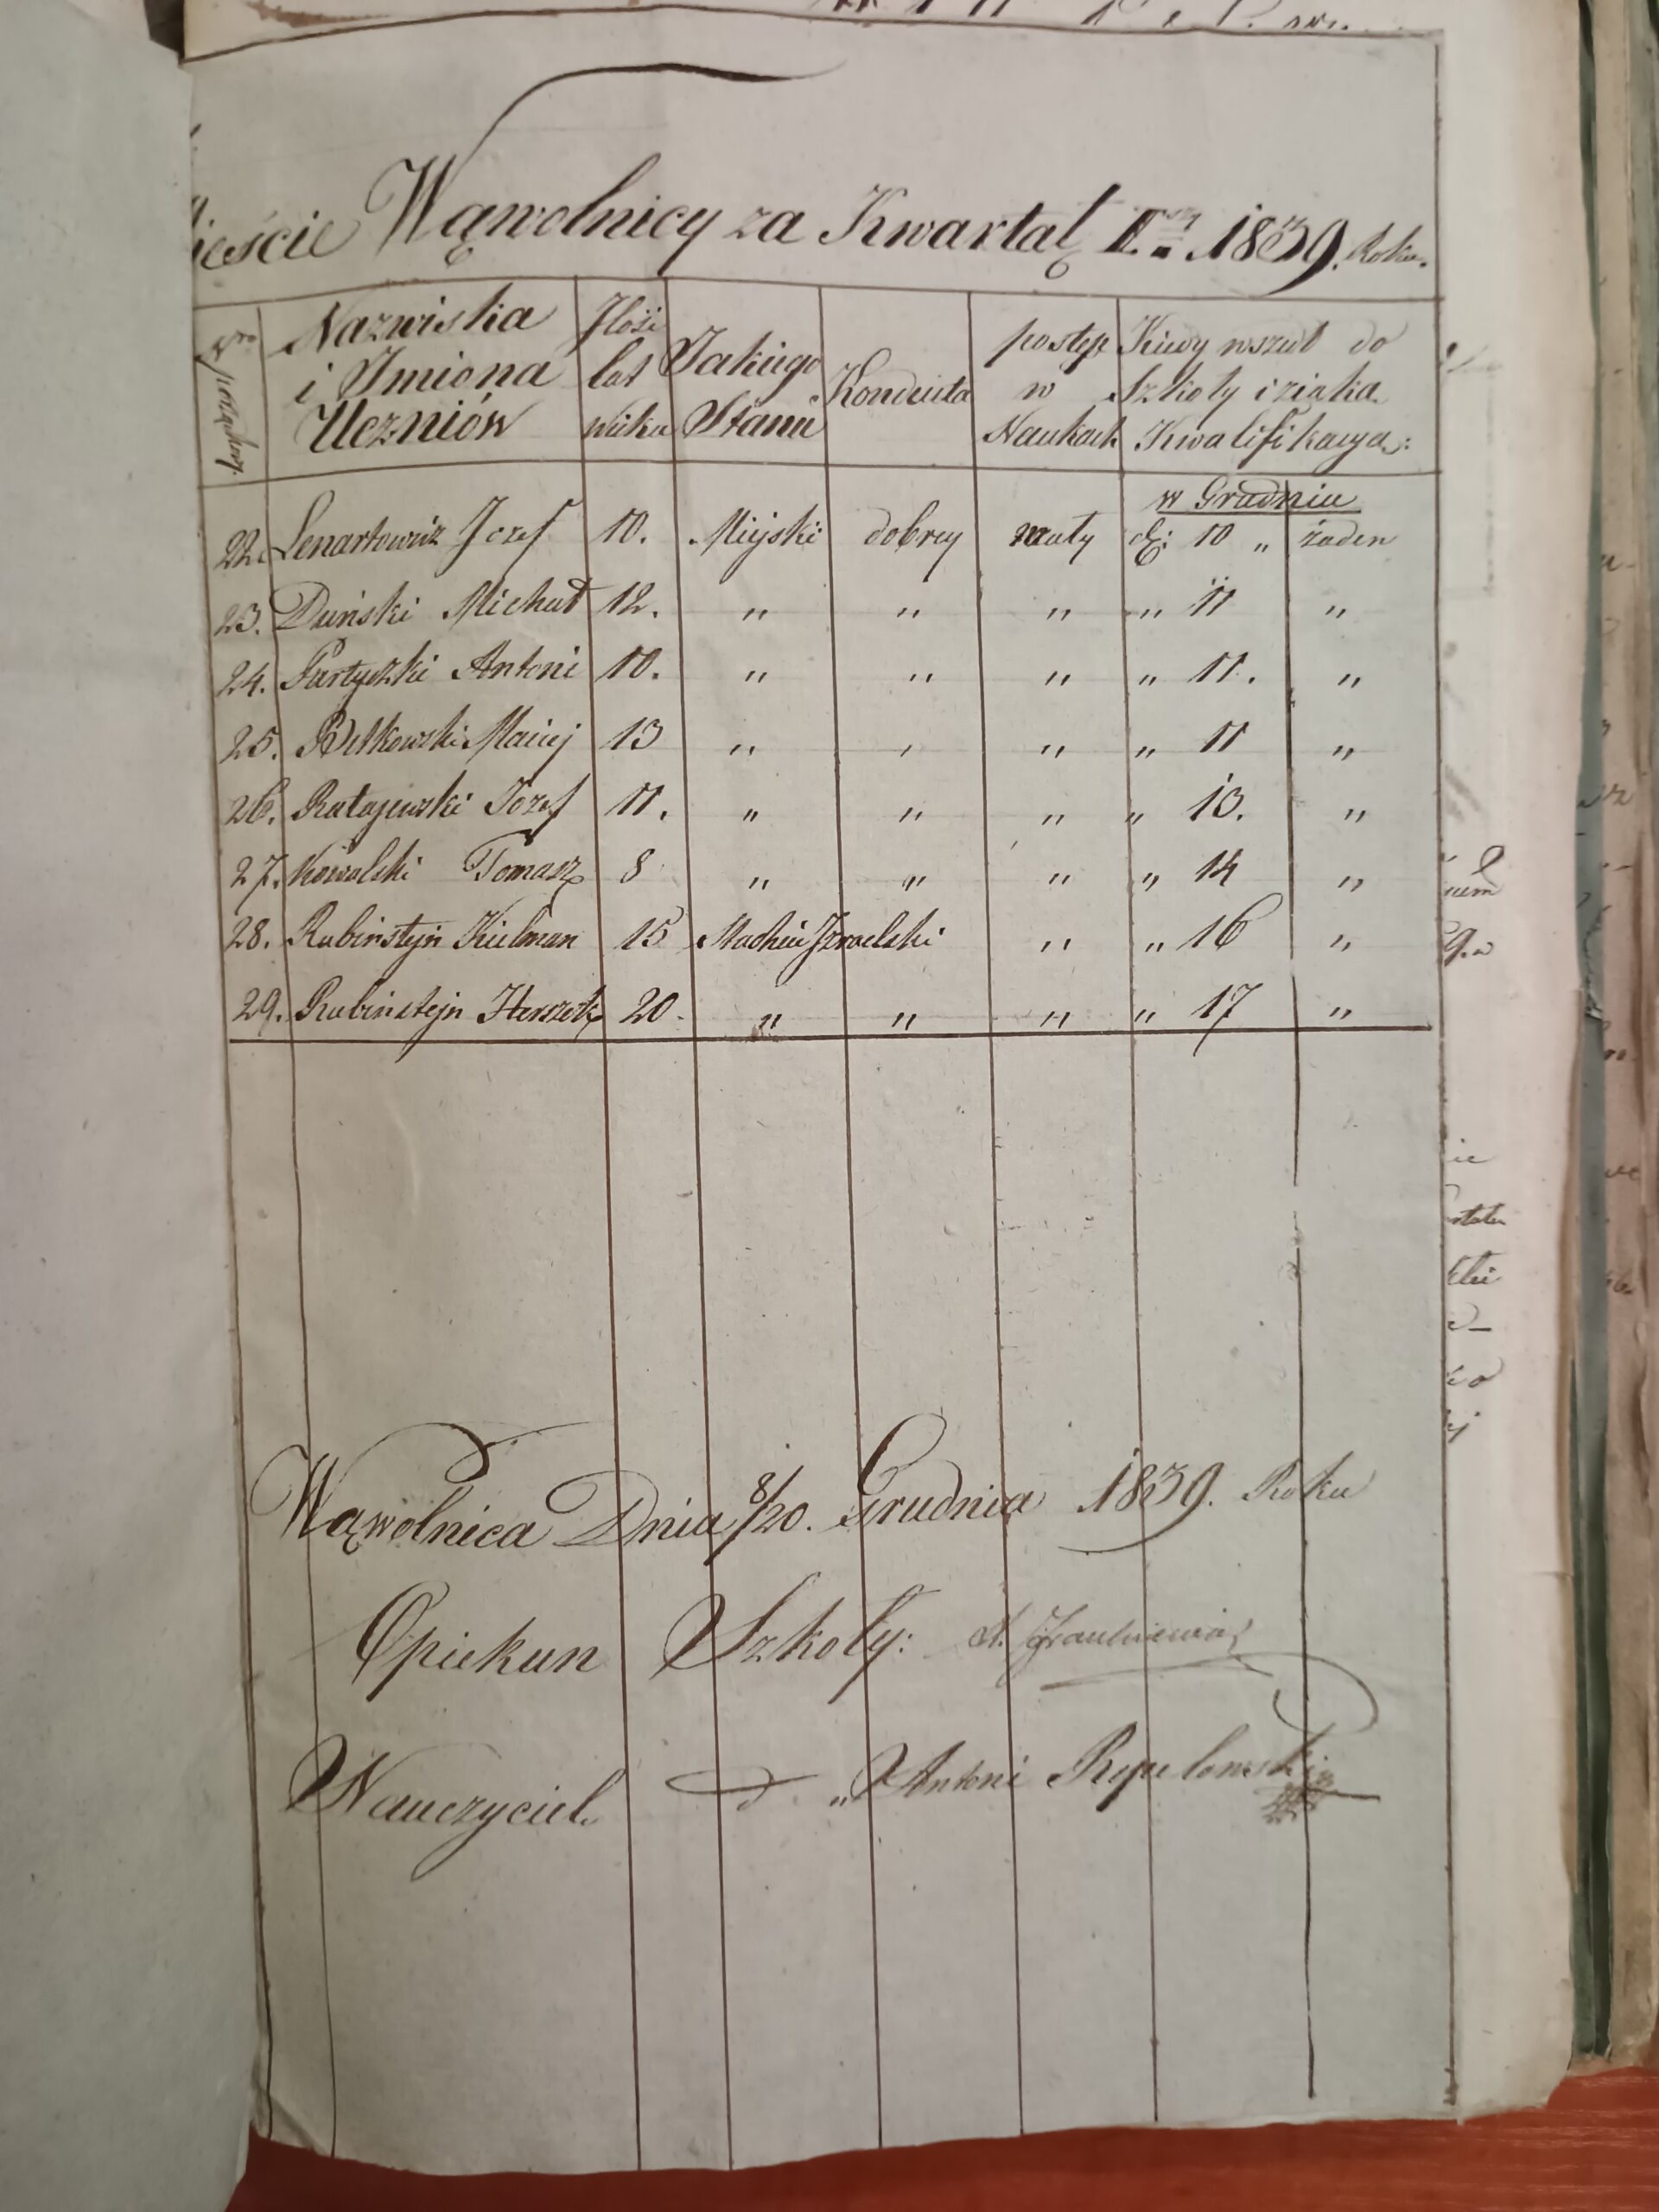 ieście Wąwolnicy za Kwartał I.szy 1839. Roku.
Nro porządkowy. Nazwiska i Imiona Uczniów Ilość lat wieku Jakiego Stanu Konduita postęp w Naukach Kiedy wszedł do Szkoły i ziaka Kwalifikacyą:
w Grudniu
22. Lenartowicz Jozef 10. Miejski dobrey mały d: 10 „ żaden
23. Duński Michał 12. „ „ „ „ 11 „
24. Partyczki Antoni 10. „ „ „ „ 11. „
25. Betkowski Maciej 13 „ „ „ „ 11 „
26. Ratajewski Jozef 11. „ „ „ „ 13. „
27. Kowalski Tomasz 8 „ „ „ „ 14 „
28. Rubinsteyn Kielman 15 Izraelski „ „ 16 „
29. Rubinstejn Herszek 20. „ „ „ „ 17 „
Wąwolnica Dnia 8/20. Grudnia 1839. Roku
Opiekun Szkoły:
Nauczyciel „Antoni